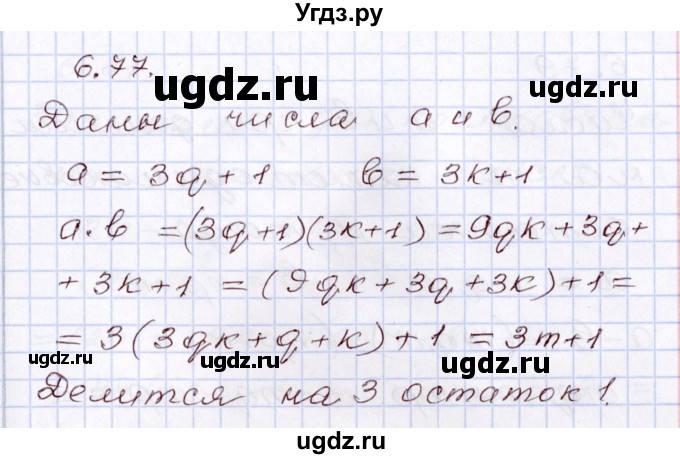 Угдз.ру
6.77.
ugdz.ru
Даны числа a и b.
a = 3q + 1 b = 3k+1
ugdz.ru
a·b = (3q+1)(3k+1) = 9qk + 3q+
+ 3k+1 = (9qk + 3q +3k) + 1 =
= 3(3qk+q+k) + 1 = 3m+1
ugdz.ru ugdz.ru ugdz.ru
Делится на 3 остаток 1.
ugdz.ru